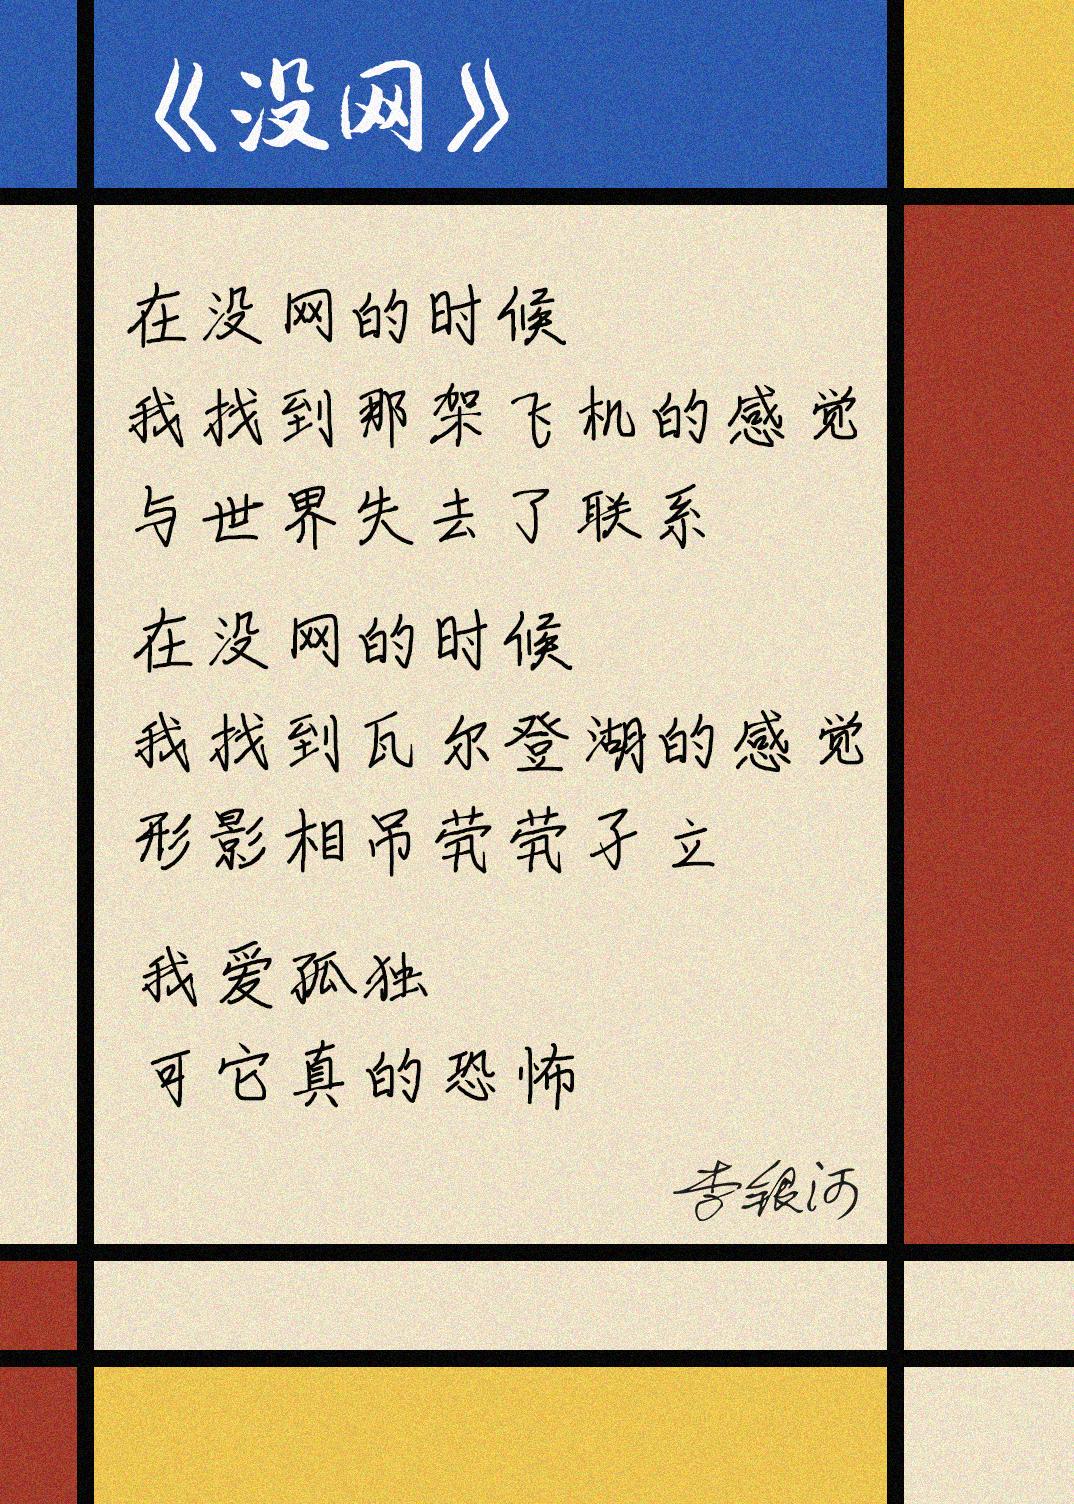 《没网》
在没网的时候
我找到那架飞机的感觉
与世界失去了联系
在没网的时候
我找到瓦尔登湖的感觉
形影相吊茕茕孑立
我爱孤独
可它真的恐怖
李银河